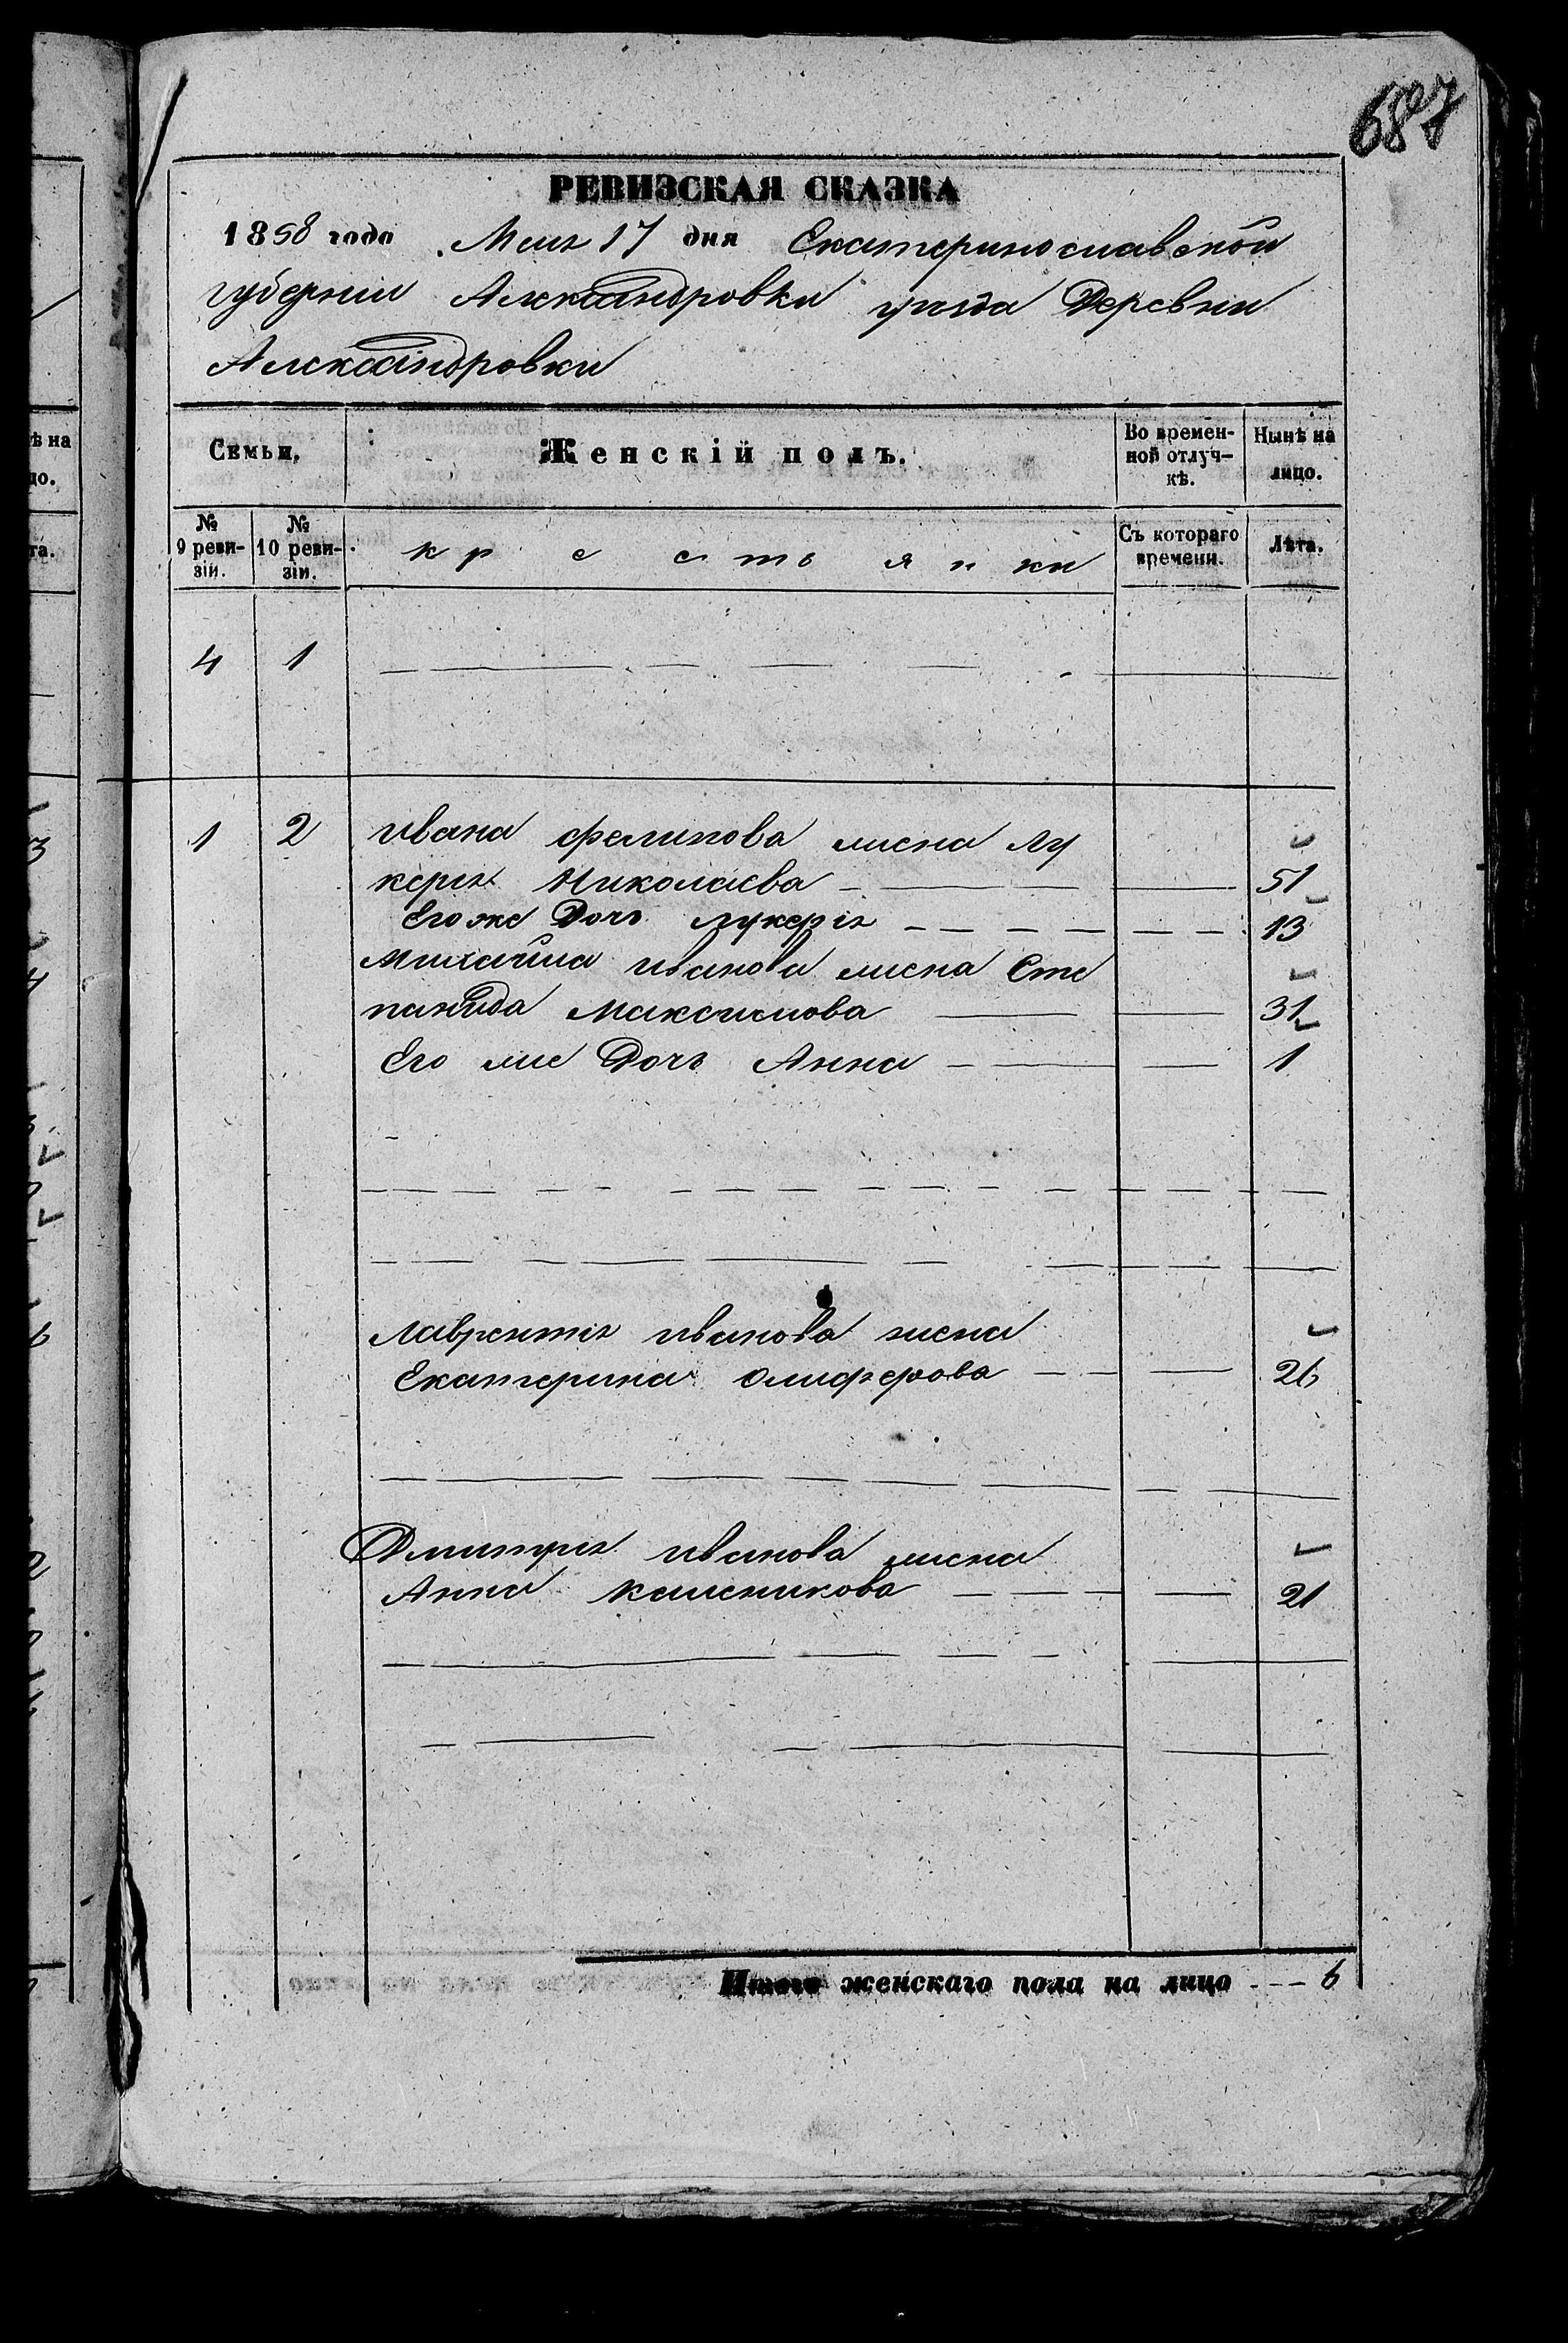 687
РЕВИЗСКАЯ СКАЗКА
1858 года Мая 17 дня Екатеринославской
губерніи Александровки уезда Деревни
Александровки
Семьи. Женскій полъ. Во времен-ной отлуч-кѣ. Нынѣ на лицо.
№ 9 реви-зіи. № 10 реви-зіи. крестьянки Съ котораго времени. Лѣта.
4 1
1 2 Ивана Филипова жена Лу
керія Николаева 51
Его же Дочь Лукерія 13
Михайла Иванова жена Сте
панида Максимова 31
Его же Дочь Анна 1
Лаврентія Иванова жена
Екатерина Олиферова 26
Дмитрія Иванова жена
Анна 21
Итого женскаго пола на лицо 6